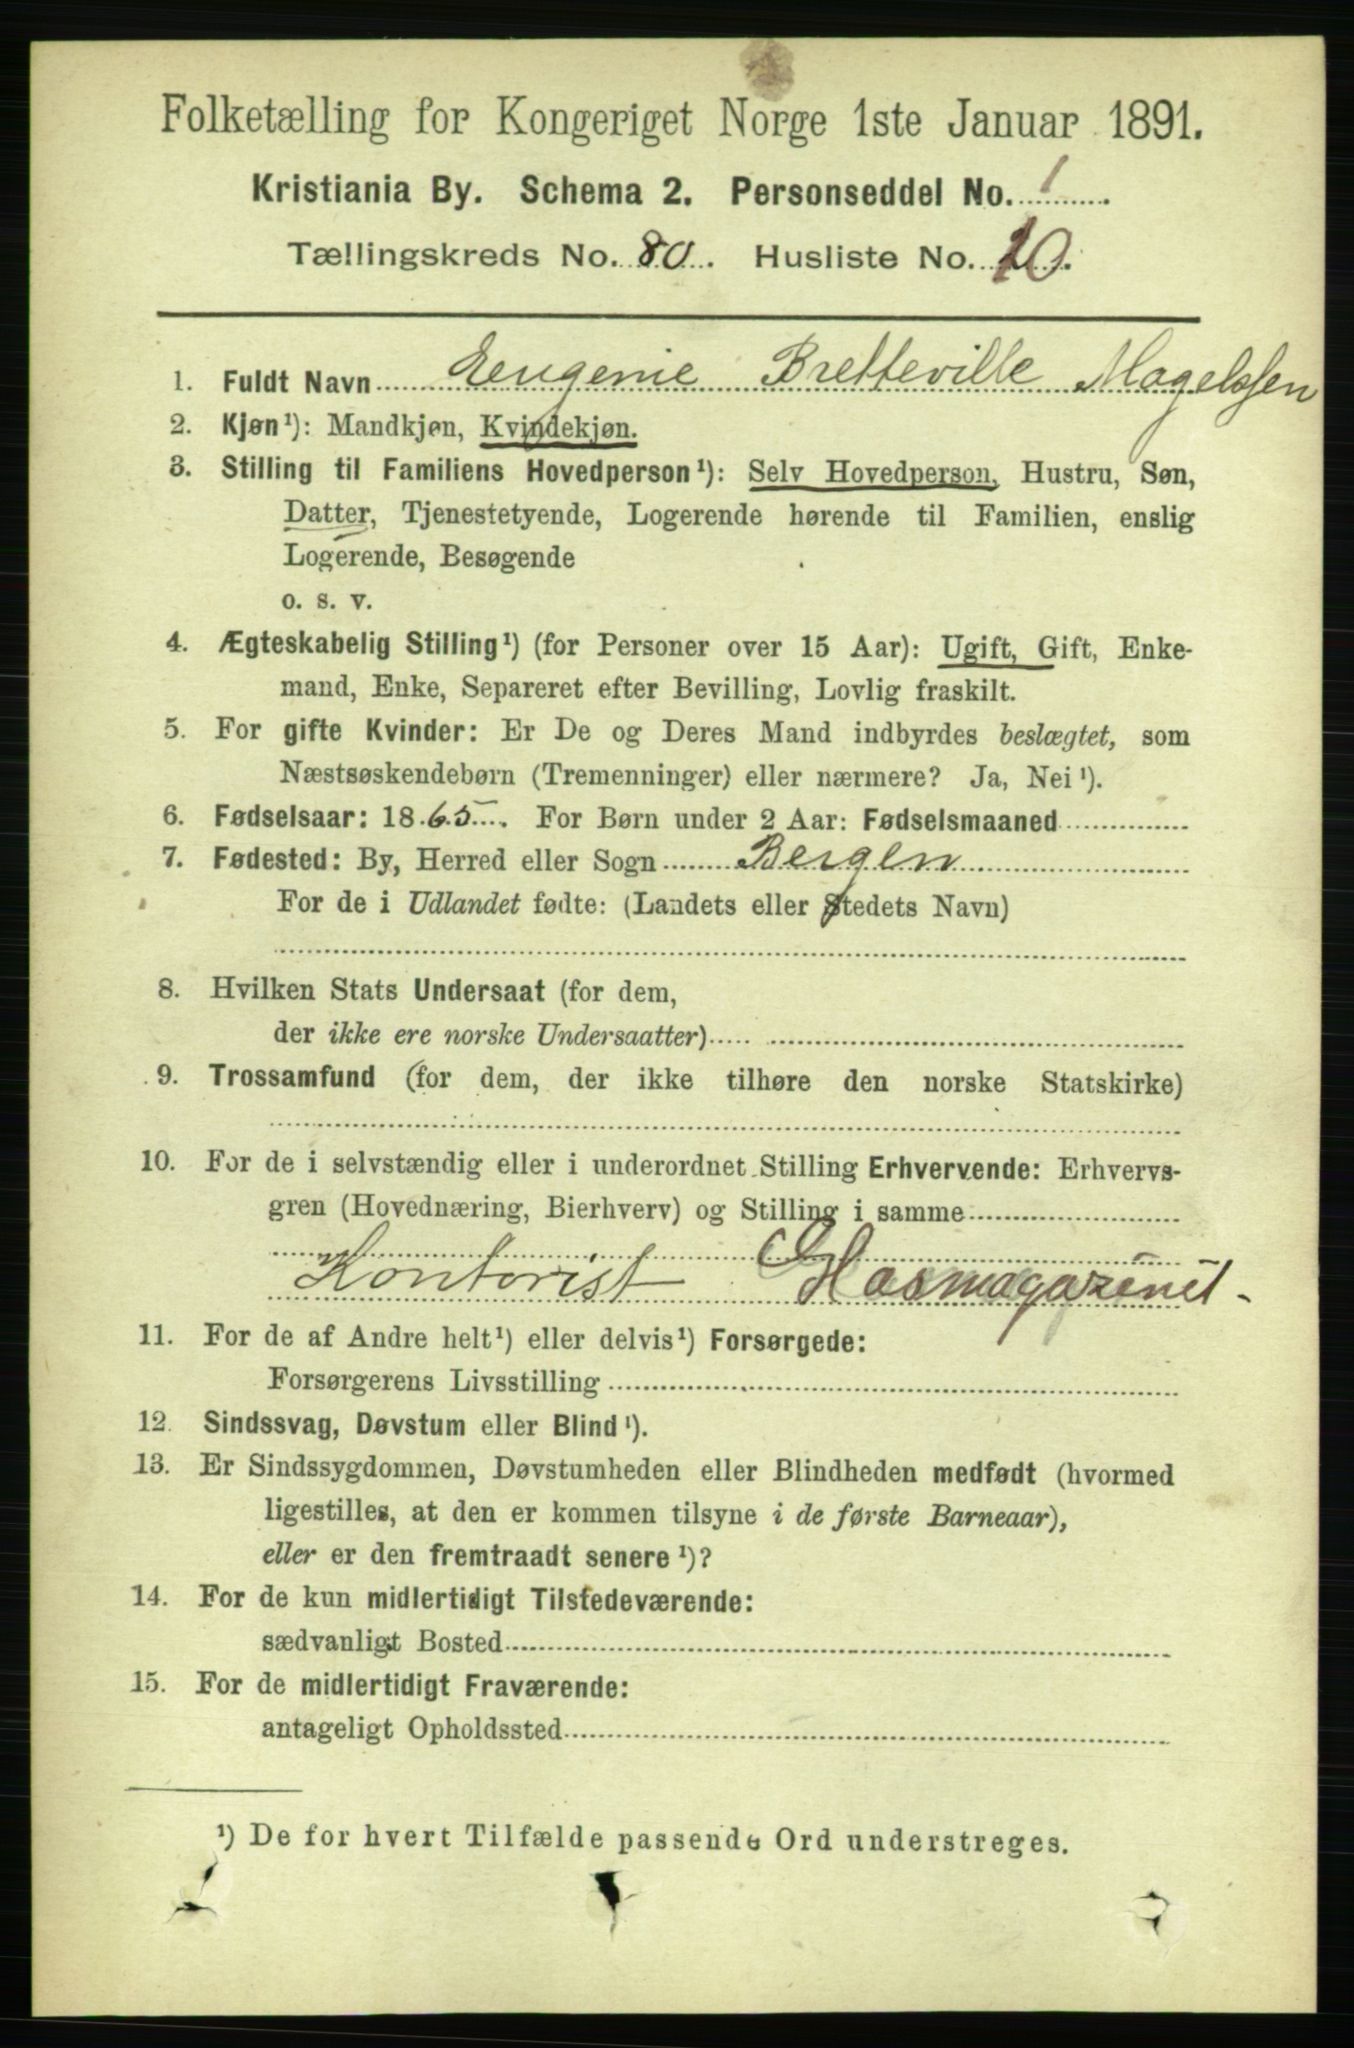 Folketælling for Kongeriget Norge 1ste Januar 1891.
Kristiania By. Schema 2. Personseddel No. 1
Tællingskreds No. 80. Husliste No. 20.
1. Fuldt Navn Eeugenie Bretteville Magelssen
2. Kjøn¹): Mandkjøn, Kvindekjøn.
3. Stilling til Familiens Hovedperson¹): Selv Hovedperson, Hustru, Søn,
Datter, Tjenestetyende, Logerende hørende til Familien, enslig
Logerende, Besøgende
o. s. v.
4. Ægteskabelig Stilling¹) (for Personer over 15 Aar): Ugift, Gift, Enke-
mand, Enke, Separeret efter Bevilling, Lovlig fraskilt.
5. For gifte Kvinder: Er De og Deres Mand indbyrdes beslægtet, som
Næstsøskendebørn (Tremenninger) eller nærmere? Ja, Nei¹).
6. Fødselsaar: 1865. For Børn under 2 Aar: Fødselsmaaned
7. Fødested: By, Herred eller Sogn Bergen
For de i Udlandet fødte: (Landets eller Stedets Navn)
8. Hvilken Stats Undersaat (for dem,
der ikke ere norske Undersaatter)
9. Trossamfund (for dem, der ikke tilhøre den norske Statskirke)
10. For de i selvstændig eller i underordnet Stilling Erhvervende: Erhvervs-
gren (Hovednæring, Bierhverv) og Stilling i samme
Kontorist Glasmagazinet
11. For de af Andre helt¹) eller delvis¹) Forsørgede:
Forsørgerens Livsstilling
12. Sindssvag, Døvstum eller Blind¹).
13. Er Sindssygdommen, Døvstumheden eller Blindheden medfødt (hvormed
ligestilles, at den er kommen tilsyne i de første Barneaar),
eller er den fremtraadt senere¹)?
14. For de kun midlertidigt Tilstedeværende:
sædvanligt Bosted
15. For de midlertidigt Fraværende:
antageligt Opholdssted
¹) De for hvert Tilfælde passende Ord understreges.